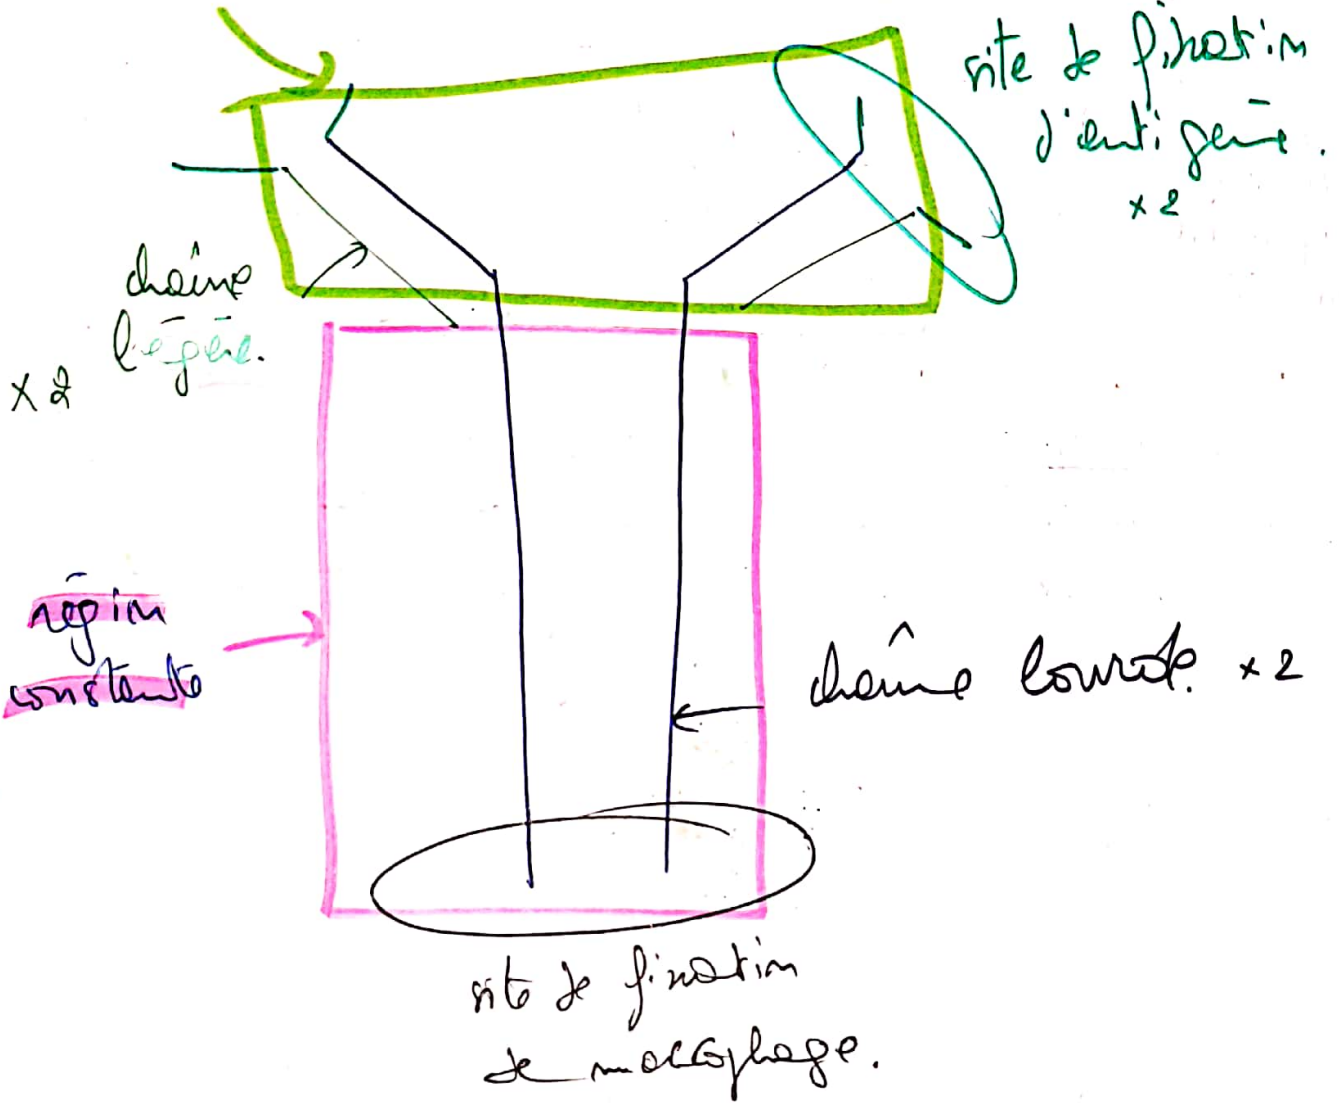 site de fixation
d'antigène.
x 2
chaîne
légère.
x 2
région
constante
chaîne lourde. x 2
site de fixation
de macrophage.